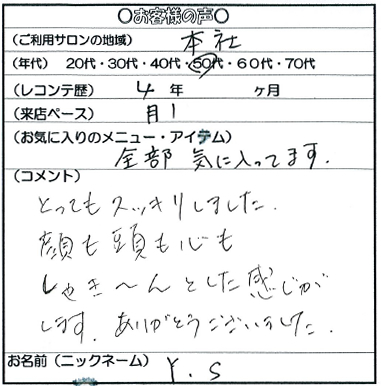 〇お客様の声〇
(ご利用サロンの地域) 本社
(年代) 20代・30代・40代・50代・60代・70代
(レコンテ歴) 4 年 ヶ月
(来店ペース) 月1
(お気に入りのメニュー・アイテム)
全部 気に入ってます.
(コメント)
とってもスッキリしました.
顔も頭も心も
しゃき〜んとした感じが
します. ありがとうございました.
お名前(ニックネーム) Y.S